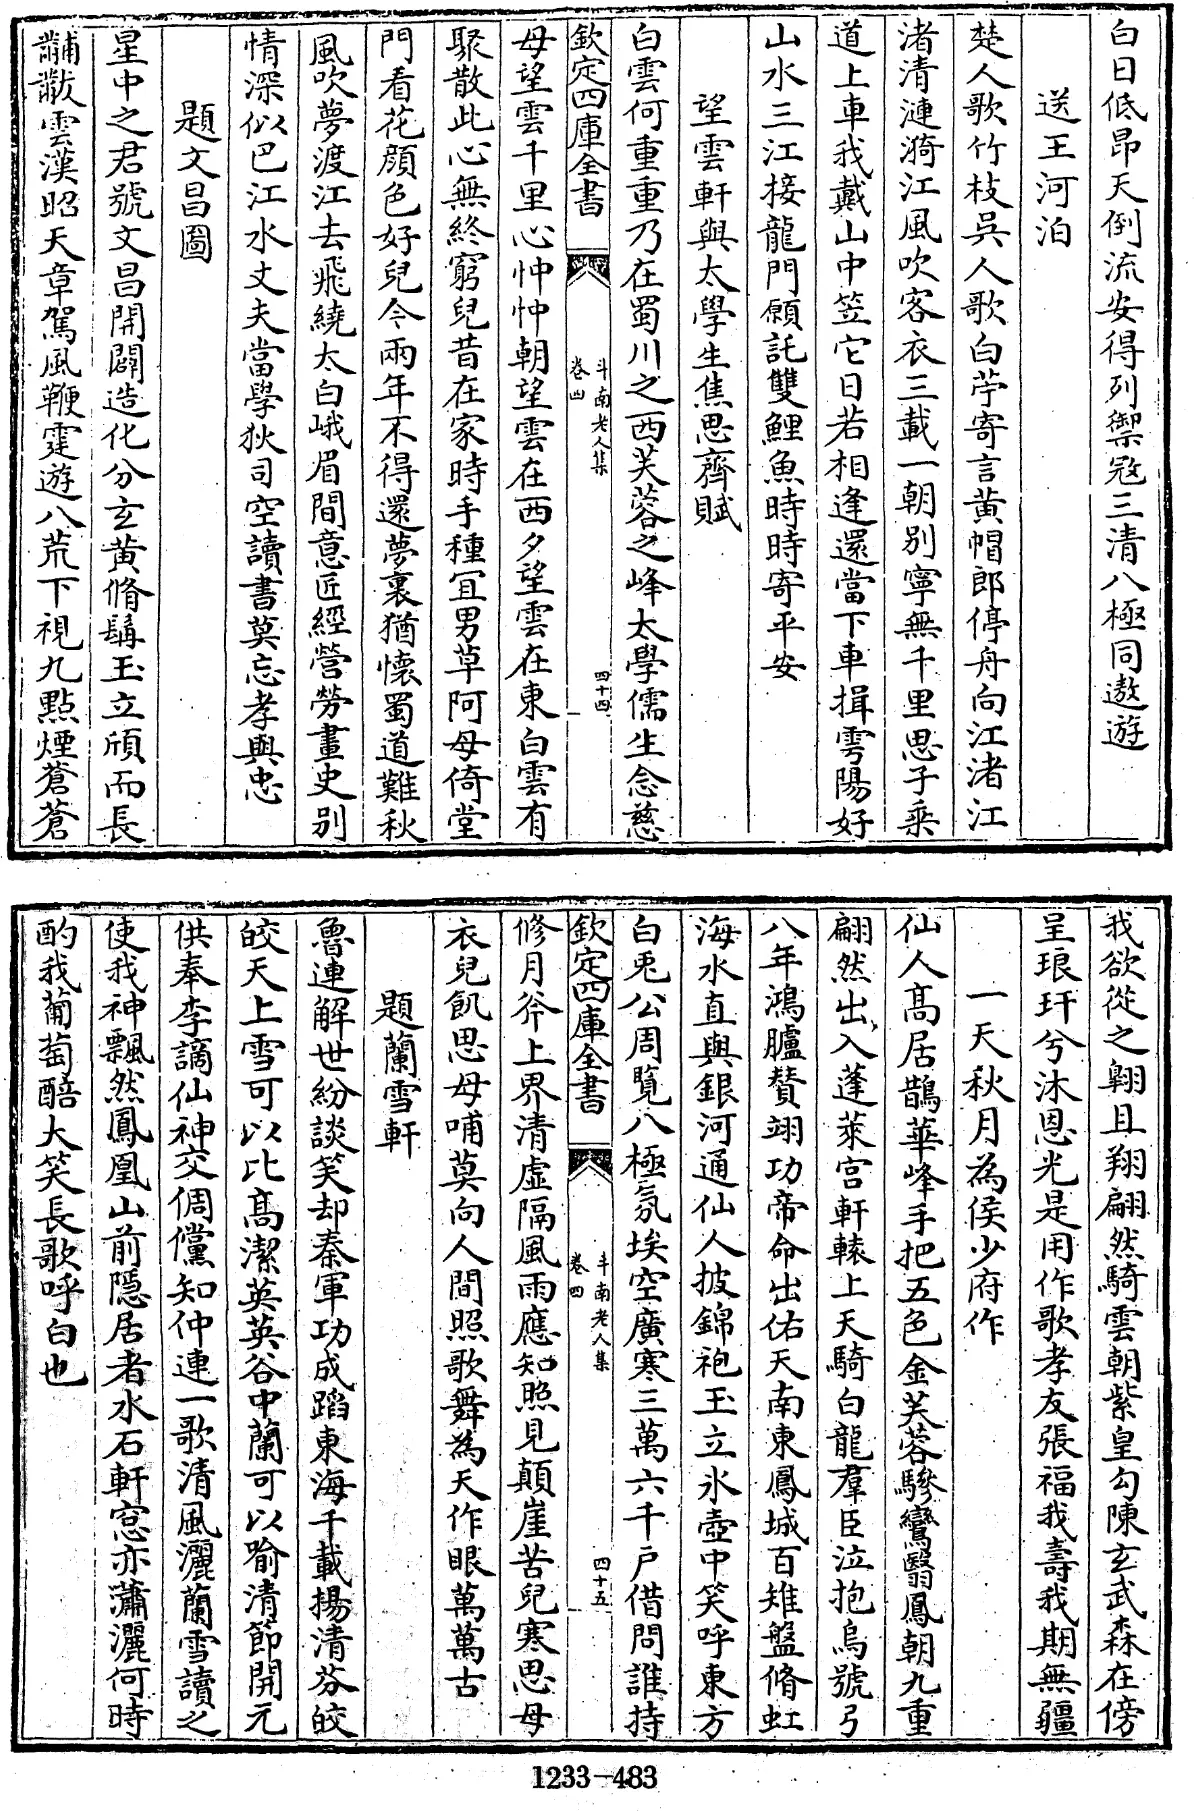 白日低昂天倒流安得列禦冦三清八極同遨遊
送王河泊
楚人歌竹枝吳人歌白苧寄言黃帽郎停舟向江渚江
渚清漣漪江風吹客衣三載一朝別寧無千里思子乘
道上車我戴山中笠它日若相逢還當下車揖雩陽好
山水三江接龍門願託雙鯉魚時時寄平安
望雲軒與太學生焦思齊賦
白雲何重重乃在蜀川之西芙蓉之峰太學儒生念慈
欽定四庫全書
斗南老人集
卷四
四十四
母望雲千里心忡忡朝望雲在西夕望雲在東白雲有
聚散此心無終窮兒昔在家時手種宜男草阿母倚堂
門看花顏色好兒今兩年不得還夢裏猶懷蜀道難秋
風吹夢渡江去飛繞太白峨眉間意匠經營勞畫史別
情深似巴江水丈夫當學狄司空讀書莫忘孝與忠
題文昌圖
星中之君號文昌開闢造化分玄黃脩髯玉立頎而長
黼黻雲漢昭天章駕風鞭霆遊八荒下視九點煙蒼蒼
我欲從之翺且翔翩然騎雲朝紫皇勾陳玄武森在傍
呈琅玕兮沐恩光是用作歌孝友張福我壽我期無疆
一天秋月為侯少府作
仙人高居鵲華峰手把五色金芙蓉驂鸞翳鳳朝九重
翩然出入蓬萊宮軒轅上天騎白龍羣臣泣抱烏號弓
八年鴻臚贊翊功帝命出佑天南東鳳城百雉盤脩虹
海水直與銀河通仙人披錦袍玉立氷壺中笑呼東方
白兎公周覽八極氛埃空廣寒三萬六千戶借問誰持
欽定四庫全書
斗南老人集
卷四
四十五
修月斧上界清虛隔風雨應知照見顛崖苦兒寒思母
衣兒飢思母哺莫向人間照歌舞為天作眼萬萬古
題蘭雪軒
魯連解世紛談笑却秦軍功成蹈東海千載揚清芬皎
皎天上雪可以比高潔英英谷中蘭可以喻清節開元
供奉李謫仙神交倜儻知仲連一歌清風灑蘭雪讀之
使我神飄然鳳凰山前隱居者水石軒窓亦瀟灑何時
酌我葡萄醅大笑長歌呼白也
1233-483